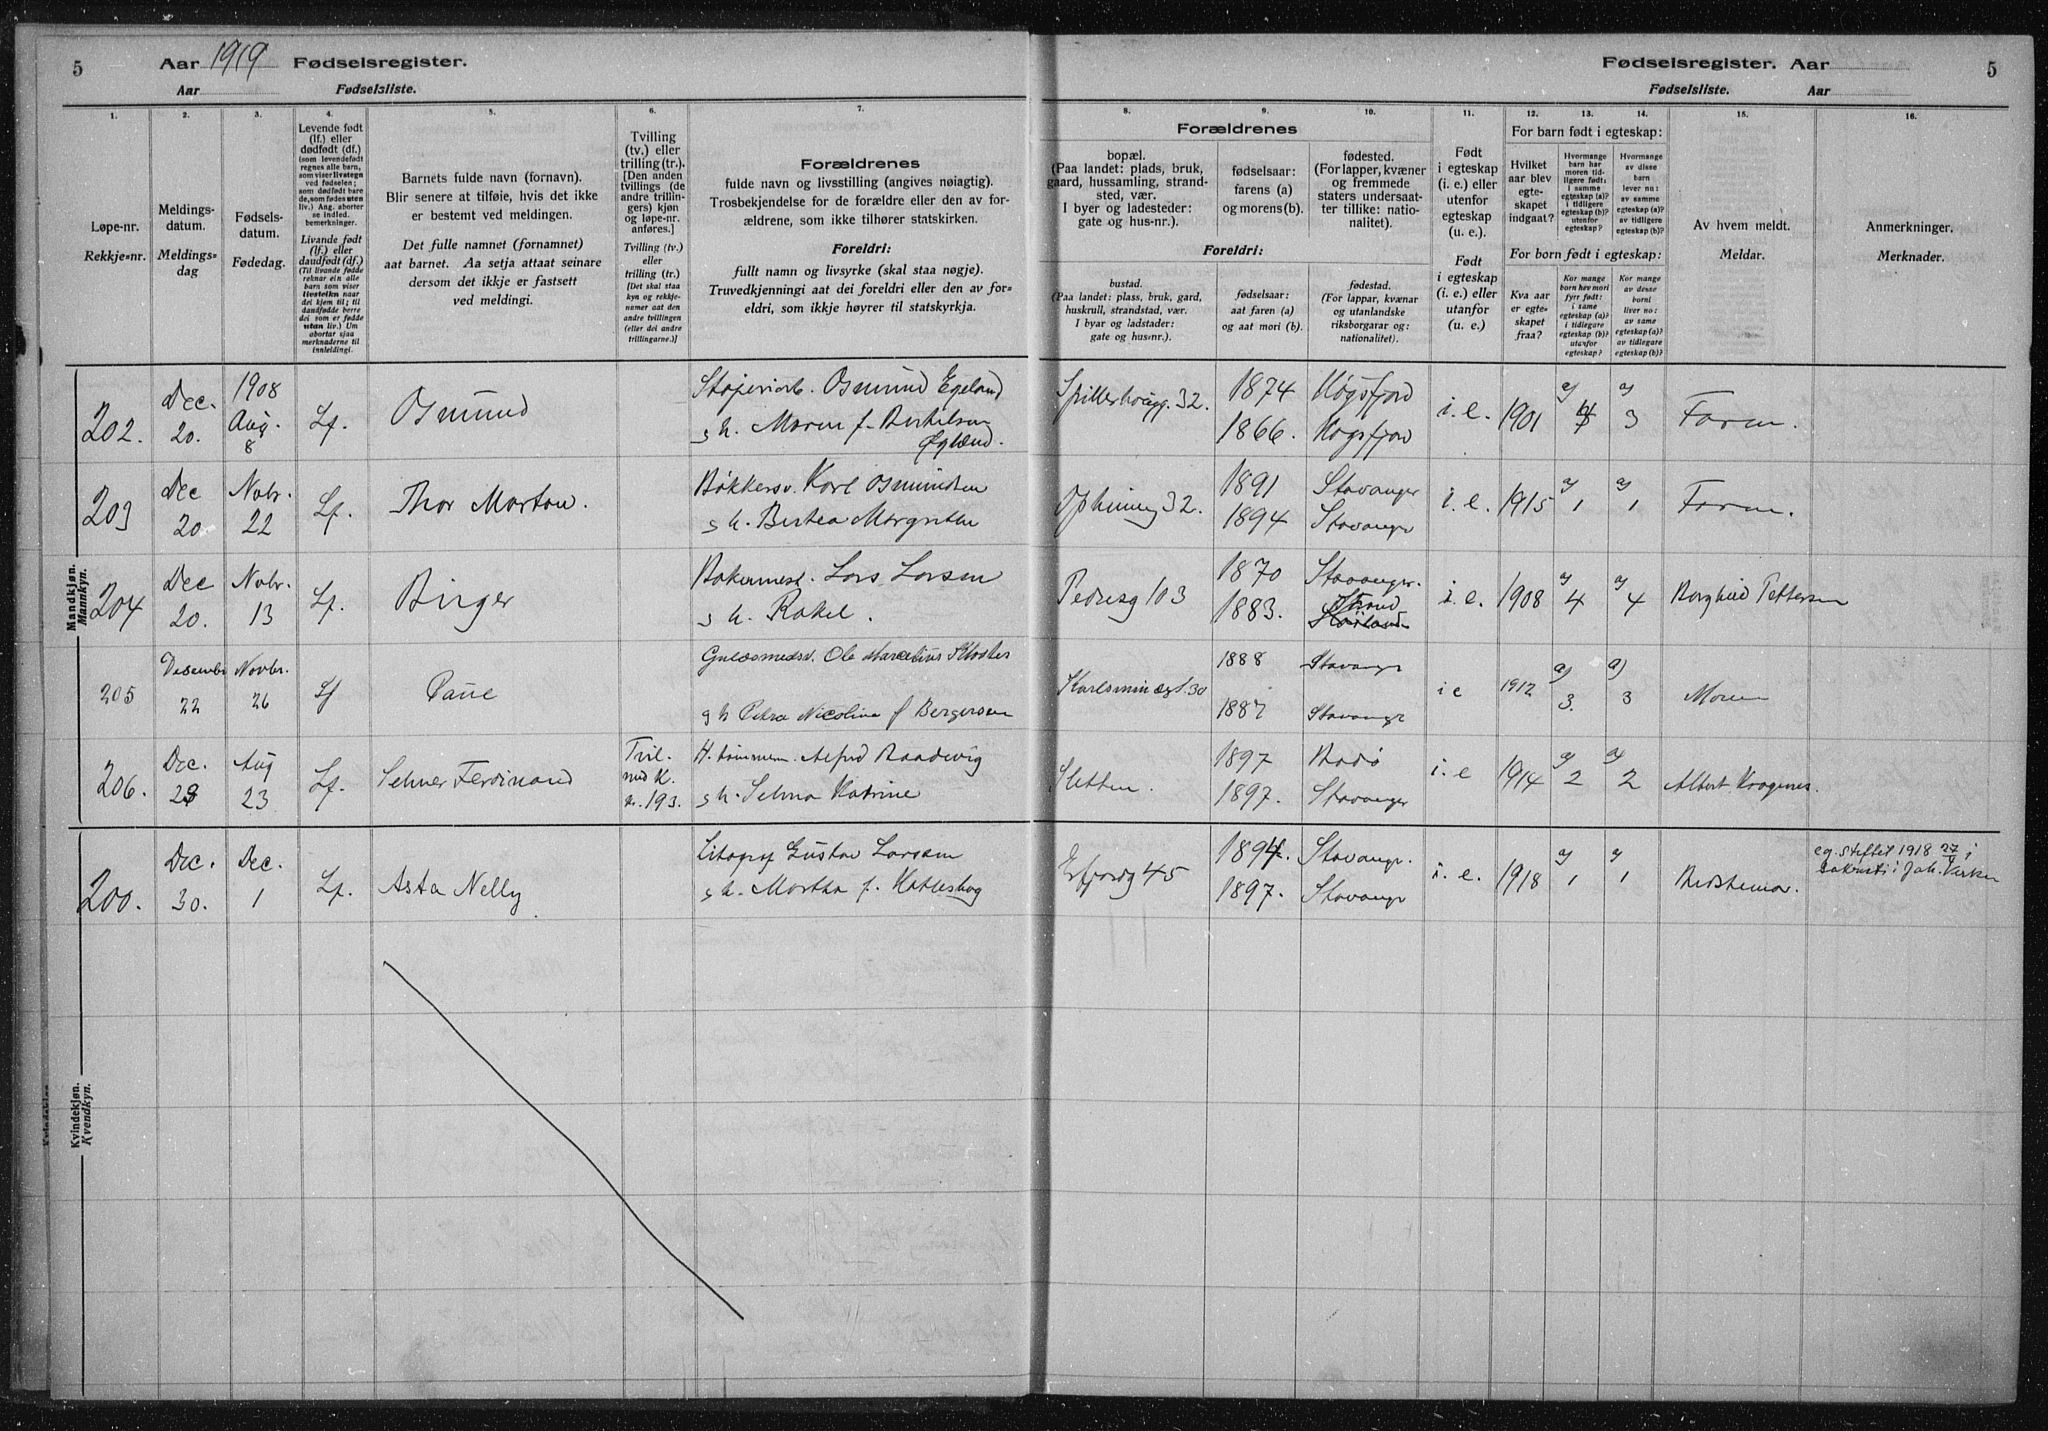 5 Aar 1919 Fødselsregister.
Aar Fødselsliste.
Fødselsregister. Aar 5
Fødselsliste. Aar
1. 2. 3. 4. 5. 6. 7. 8. 9. 10. 11. 12. 13. 14. 15. 16.
Løpe-nr.
Rekkje=nr.
Meldings-
datum.
Meldings=
dag
Fødsels-
datum.
Fødedag.
Levende født
(lf.) eller
dødfødt (df.)
(som levendefødt
regnes alle barn,
som viser livstegn
ved fødselen;
som dødfødt bare
de, som fødes uten
liv.) Ang. aborter
se indled.
bemerkninger.
Livande født
(lf.) eller
daudfødt (df.)
(Til livande fødde
reknar ein alle
barn som viser
livsteikn naar
dei kjem til; til
daudfødde berre
dei som er fødde
utan liv.) Um
abortar sjaa
merknaderne til
innleidingi.
Barnets fulde navn (fornavn).
Blir senere at tilføie, hvis det ikke
er bestemt ved meldingen.
Det fulle namnet (fornamnet)
aat barnet. Aa setja attaat seinare
dersom det ikkje er fastsett
ved meldingi.
Tvilling
(tv.) eller
trilling (tr.).
[Den anden
tvillings (de
andre trillin-
gers) kjøn
og løpe-nr.
anføres.]
Tvilling (tv.)
eller
trilling (tr.)
[Det skal staa
kyn og rekkje-
numer aat den
andre tvillingen
(eller dei andre
trillingarne.)]
Forældrenes
fulde navn og livsstilling (angives nøiagtig).
Trosbekjendelse for de forældre eller den av for-
ældrene, som ikke tilhører statskirken.
Foreldri:
fullt namn og livsyrke (skal staa nøgje).
Truvedkjenningi aat dei foreldri eller den av for=
eldri, som ikkje høyrer til statskyrkja.
Forældrenes
bopæl.
(Paa landet: plads, bruk,
gaard, hussamling, strand-
sted, vær.
I byer og ladesteder:
gate og hus-nr.).
fødselsaar:
farens (a)
og morens (b).
fødested.
(For lapper, kvæner
og fremmede
staters undersaat-
ter tillike: natio-
nalitet).
Foreldri:
bustad.
(Paa landet: plass, bruk, gard,
huskrull, strandstad, vær.
I byar og ladstader:
gate og hus=nr.).
fødselsaar:
aat faren (a)
og aat mori (b).
fødestad.
(For lappar, kvænar
og utanlandske
riksborgarar og:
nationalitet).
Født
i egteskap
(i. e.) eller
utenfor
egteskap
(u. e.)
Født
i egteskap
(i. e.) eller
utanfor
(u. e.)
For barn født i egteskap:
Hvilket
aar blev
egte-
skapet
indgaat?
Hvormange
barn har
moren tid-
ligere født:
i samme
egteskap (a)?
i tidligere
egteskap (b)?
utenfor
egteskap?
Hvormange
av disse
barn
lever nu:
av samme
egteskap (a)?
av tidligere
egteskap (b)?
For born født i egteskap:
Kva aar
er egte-
skapet
fraa?
Kor mange
born hev mori
fyrr født:
i same
egteskap (a)?
i tidlegare
egteskap (b)?
utanfor
egteskap?
Kor mange
av desse
borni
liver no:
av same
egteskap (a)?
av tidlegare
egteskap (b)?
Av hvem meldt.
Meldar.
Anmerkninger.
Merknader.
Mandkjøn.
Mannkyn.
202. Dec. 20. 1908 Aug. 8 Lf. Osmund
Osmund Egeland
g h. Maren f. Berkelsen
Egeland.
32. 1874 Høgsfjord
1866. Høgsfjord
i. e. 1901 a) 4 a) 3 Faren.
203 Dec 20. Novbr. 22 Lf. Thor Morton.
Bøkkersv. Karl Osmundsen
g h. Bertea Margrethe
32. 1891 Stavanger
1894 Stavanger
i. e. 1915 a) 1 a) 1 Faren.
204 Dec 20. Novbr. 13 Lf. Birger
Bakermest. Lars Larsen
g h. Rakel.
Pedersg 103 1870 Stavanger.
1883. Strand
i. e. 1908 a) 4 a) 4 Borghild Pettersen
205 Desembr 22 Novbr. 26 Lf Paul
Guldsmedsv. Ole Marcelius Kloster
g h Petra Nicoline f Bergersen
Karlsminegt. 30 1888 Stavanger
1887 Stavanger
i e 1912 a) 3. a) 3 Moren
206. Dec. 28 Aug 23 Lf. Selmer Ferdinand Tvil. med K. nr. 193.
H. tømmerm. Alfred Raadevig
g h. Selma Katrine
Sletten. 1897 Bodø
1897. Stavanger
i. e 1914 a) 2 a) 2 Albert Kragenes.
Kvindekjøn.
Kvendkyn.
200. Dec. 30. Dec. 1 Lf. Asta Nelly
Litograf Gustav Larsen
g h. Martha f. Hatleskog
Erfjordg 45 1894. Stavanger.
1897. Stavanger
i. e. 1918 a) 1 a) 1 Bedstemor.
eg. stiftet 1918 27/4 i
Sakristi i Joh. Kirken